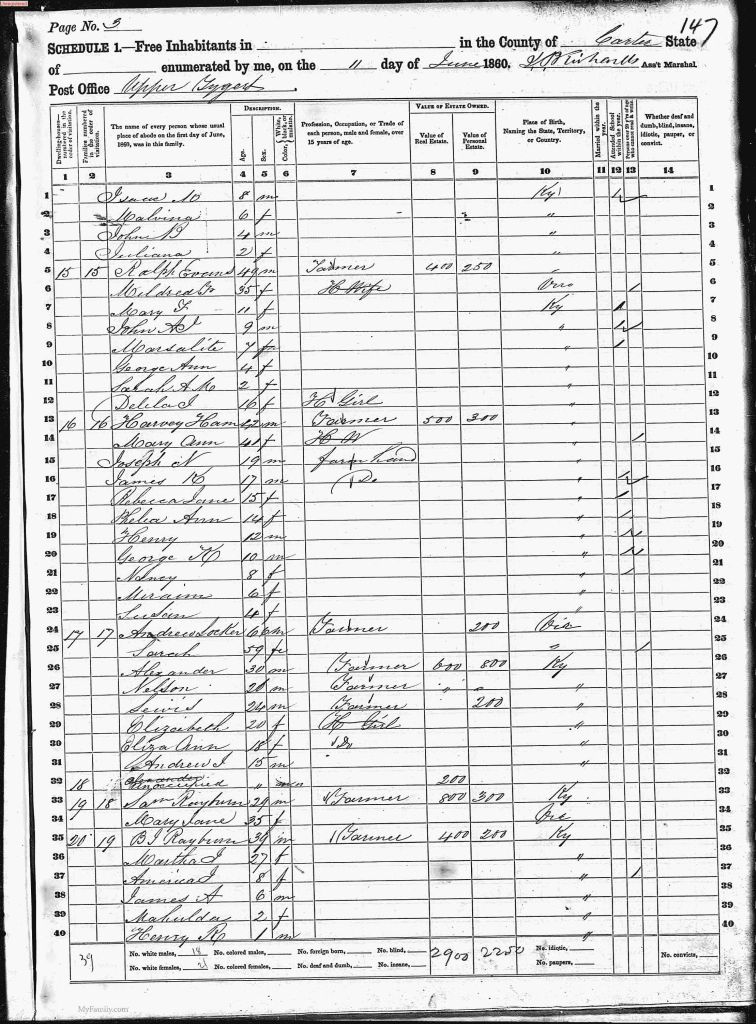 Page No. 3
147
SCHEDULE 1.—Free Inhabitants in in the County of Carter State
of enumerated by me, on the 11 day of June 1860. Ass't Marshal.
Post Office Upper Tygert
DESCRIPTION. VALUE OF ESTATE OWNED.
Dwelling-houses—numbered in the order of visitation. Families numbered in the order of visitation. The name of every person whose usual place of abode on the first day of June, 1860, was in this family. Age. Sex. Color, White, black, or mulatto. Profession, Occupation, or Trade of each person, male and female, over 15 years of age. Value of Real Estate. Value of Personal Estate. Place of Birth, Naming the State, Territory, or Country. Married within the year. Attended School within the year. Persons over 20 y'rs of age who cannot read & write. Whether deaf and dumb, blind, insane, idiotic, pauper, or convict.
1 2 3 4 5 6 7 8 9 10 11 12 13 14
1 Isaac M 8 m Ky 1 1
2 Malvina 6 f " 2
3 John B 4 m " 3
4 Juliana 2 f " 4
5 15 15 Ralph Evans 49 m Farmer 400 250 " 5
6 Mildred 35 f H Wife 6
7 Mary F 11 f Ky 1 7
8 John A J 9 m " 1 8
9 Marsalite 7 " 1 9
10 George Ann 4 f " 10
11 Sarah A M 2 f " 11
12 Delila J 16 f H Girl " 12
13 16 16 Harvey Ham 42 m Farmer 500 300 " 13
14 Mary Ann 41 f H W " 1 14
15 Joseph N 19 m farm hand " 15
16 James K 17 m Do " 1 16
17 Rebecca Jane 15 f " 1 17
18 Ann 14 f " 1 18
19 Henry 12 m " 1 19
20 George 10 m " 1 20
21 Nancy 8 f " 1 21
22 Miraim 6 f " 22
23 Susan 4 f " 23
24 17 17 Andrew 66 m Farmer 200 24
25 Sarah 59 fe " 1 25
26 Alexander 30 m Farmer 600 800 Ky 26
27 Nelson m Farmer " " " 27
28 Lewis 24 m Farmer 200 " 28
29 Elizabeth 20 f H Girl " 29
30 Eliza Ann 18 f Do " 30
31 Andrew J 15 m " 31
32 18 Unoccupied " 200 32
33 19 18 Sam Rayburn 29 m Farmer 800 300 Ky 33
34 Mary Jane 35 f 34
35 20 19 B J Rayburn 39 m Farmer 400 200 Ky 35
36 Martha J 27 f " 36
37 America J 8 f " 1 37
38 James A 6 m " 38
39 Mahulda 2 f " 39
40 Henry R 1 m " 40
39 No. white males, 18 No. colored males, No. foreign born, No. blind, 2900 2250 No. idiotic, No. convicts,
No. white females, 21 No. colored females, No. deaf and dumb, No. insane, No. paupers,
MyFamily.com